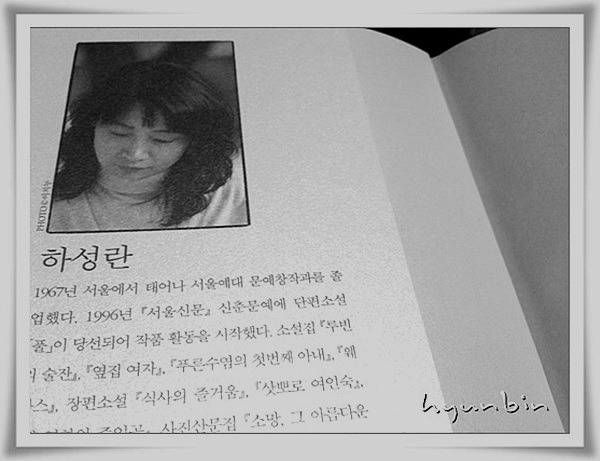 하성란
1967년 서울에서 태어나 서울예대 문예창작과를 졸
업했다. 1996년 『서울신문』 신춘문예에 단편소설
「풀」이 당선되어 작품 활동을 시작했다. 소설집 『루빈
의 술잔』, 『옆집 여자』, 『푸른수염의 첫번째 아내』, 『웨
스』, 장편소설 『식사의 즐거움』, 『삿뽀로 여인숙』,
주인공』, 사진산문집 『소망, 그 아름다운
hyunbin